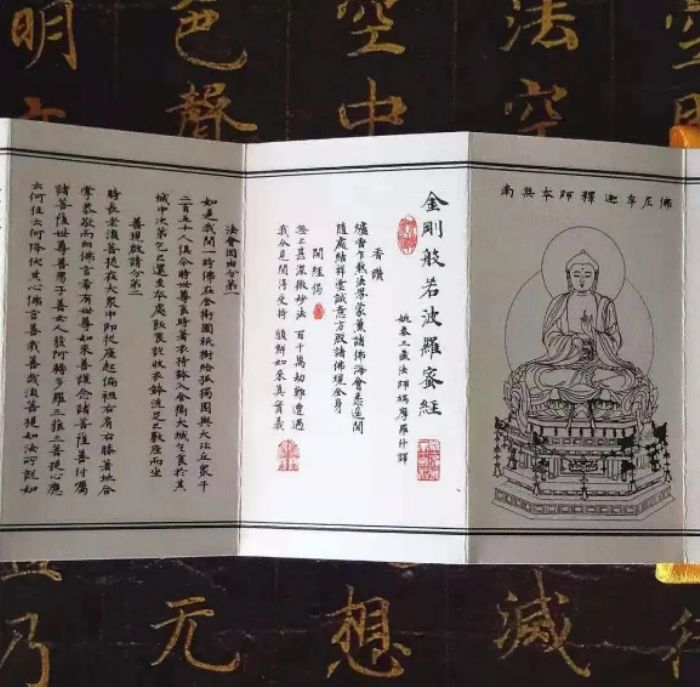 南無本師釋迦牟尼佛
金剛般若波羅蜜經
姚秦三藏法師鳩摩羅什譯
香讚
爐香乍爇法界蒙薰諸佛海會悉遙聞
隨處結祥雲誠意方殷諸佛現全身
開經偈
无上甚深微妙法 百千萬劫難遭遇
我今見聞得受持 願解如來真實義
法會因由分第一
如是我聞一時佛在舍衛國祇樹給孤獨園與大比丘眾千
二百五十人俱尒時世尊食時著衣持鉢入舍衛大城乞食於其
城中次第乞已還至本處飯食訖收衣鉢洗足已敷座而坐
善現啟請分第二
時長老須菩提在大眾中即從座起偏袒右肩右膝著地合
掌恭敬而白佛言希有世尊如來善護念諸菩薩善付囑
諸菩薩世尊善男子善女人發阿耨多羅三藐三菩提心應
云何住云何降伏其心佛言善哉善哉須菩提如汝所說如
法空
空中
色聲
明
滅
想
无
乃